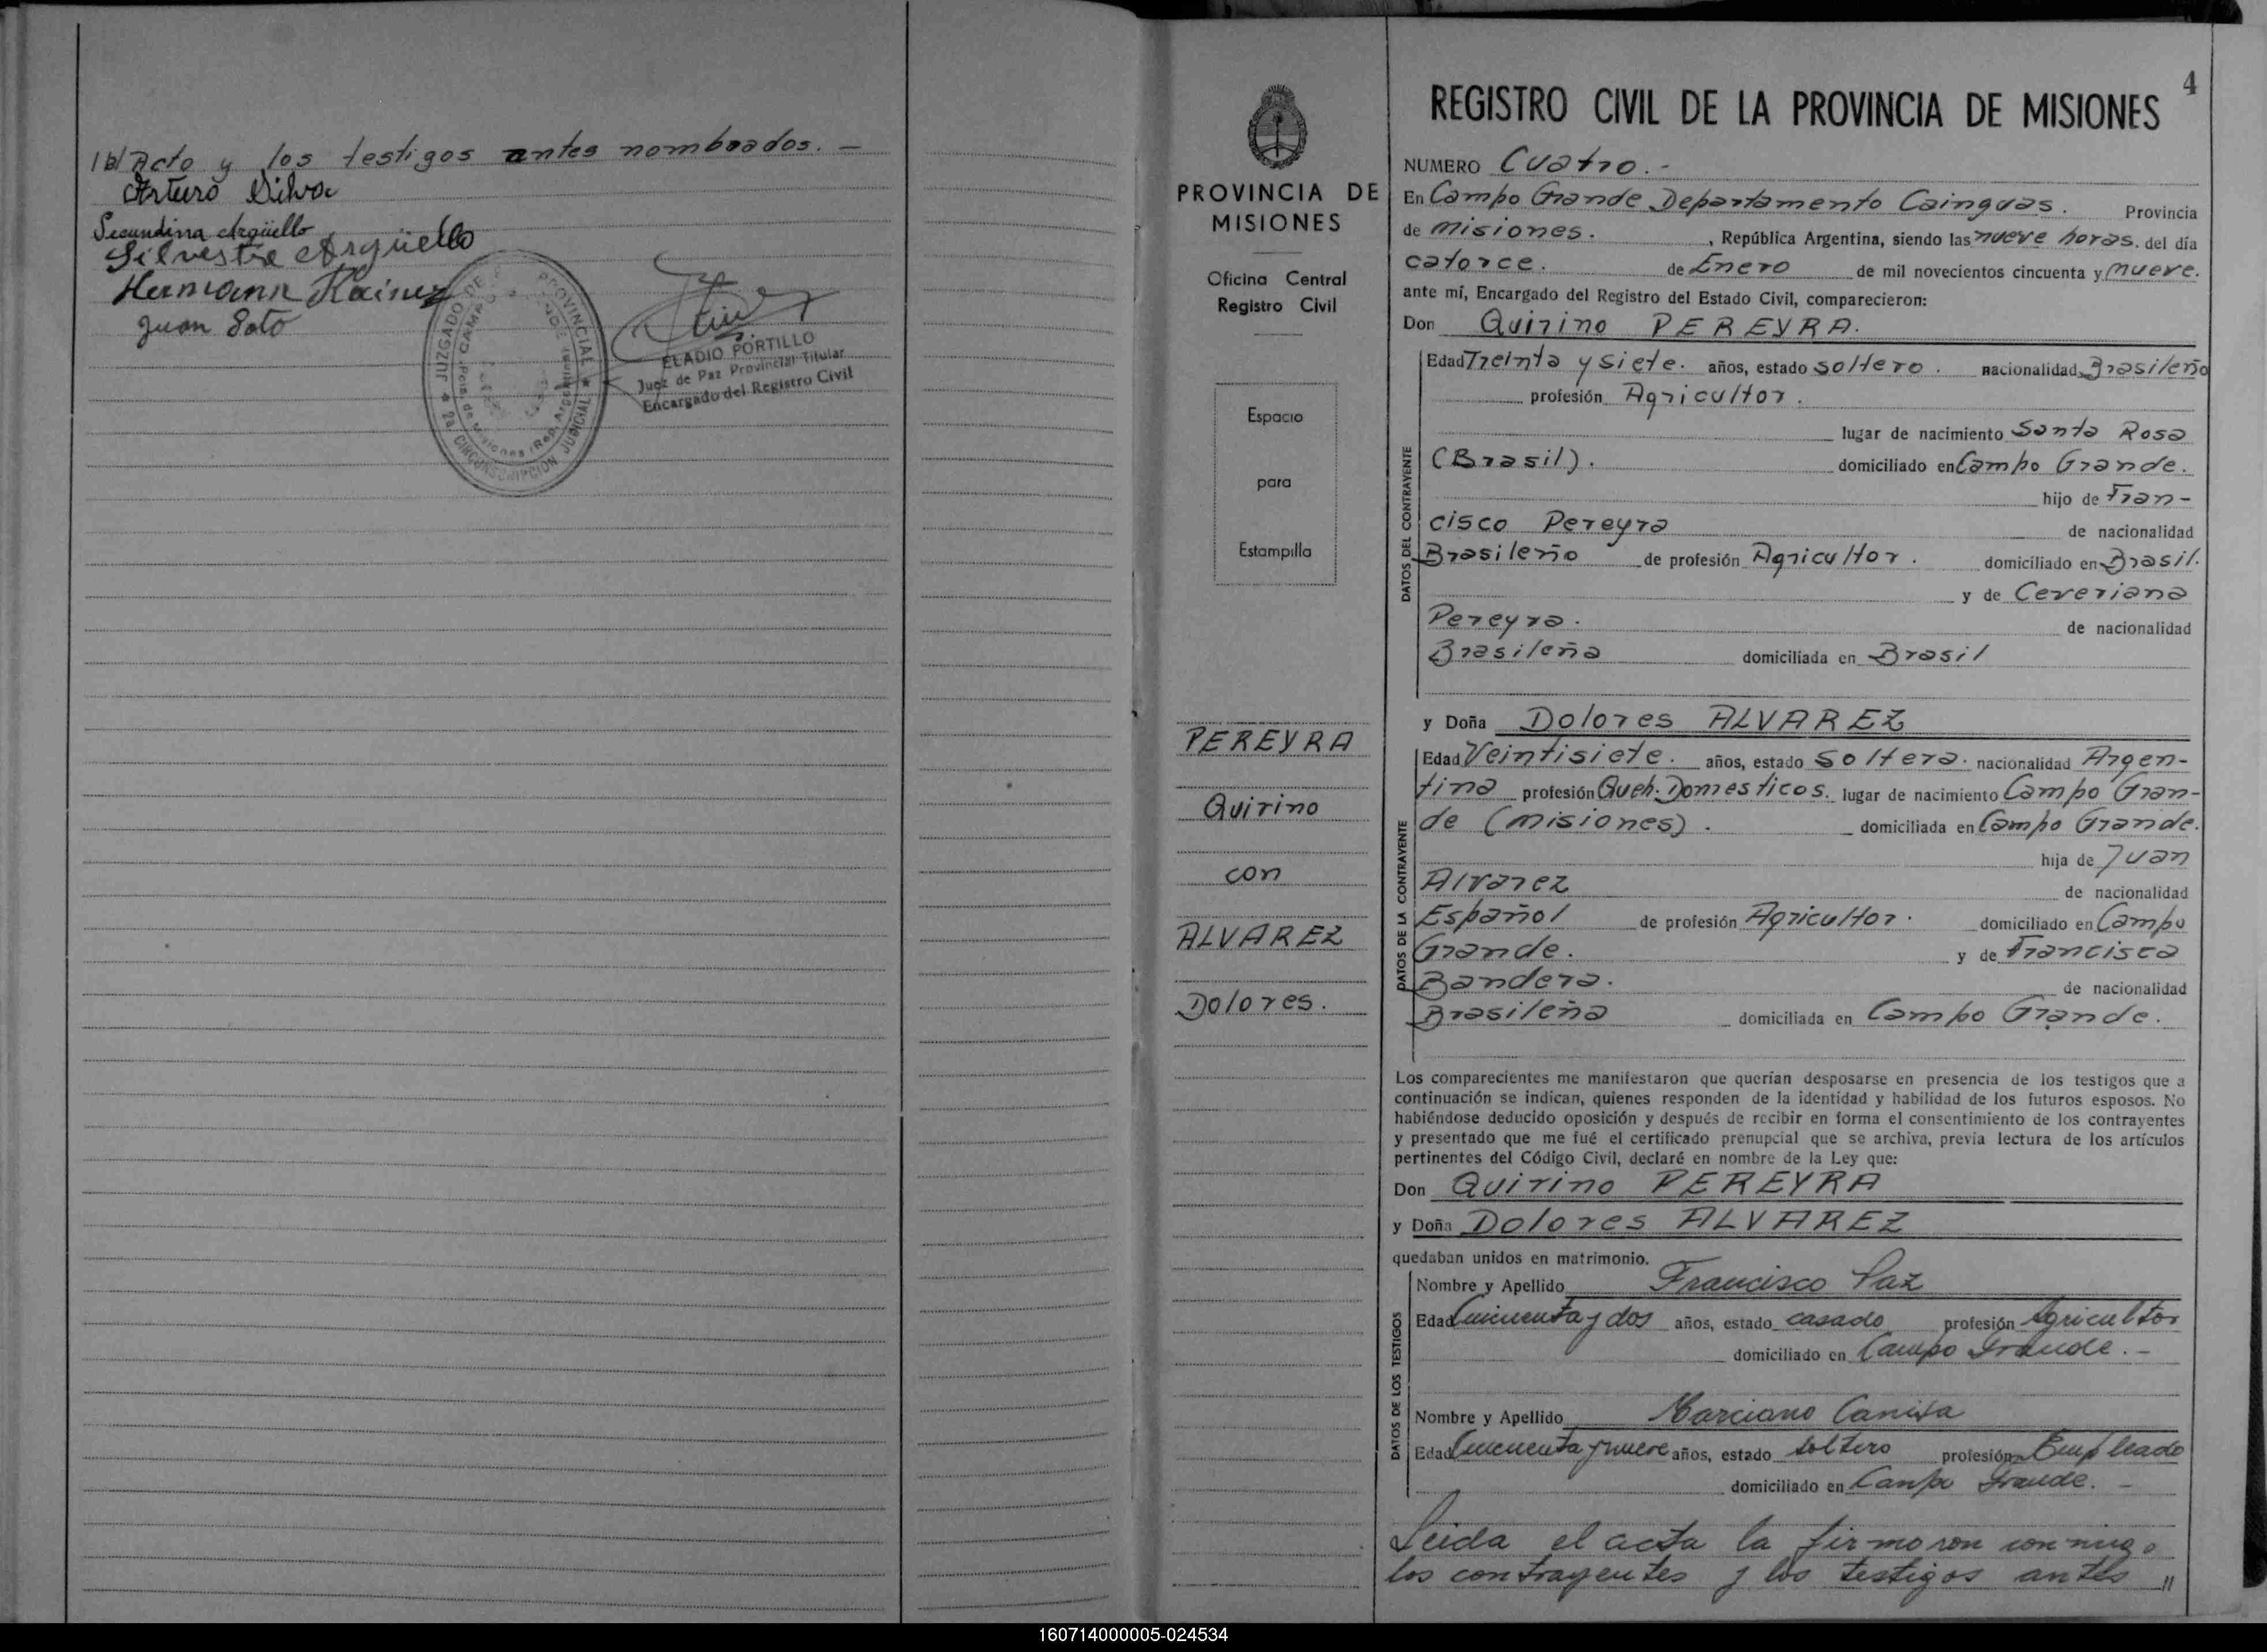 /b/ Acto y los testigos antes nombrados. —
Arturo Silva
Secundina Argüello
Silvestre Argüello
Hermann Kainer
Juan Soto
JUZGADO DE PAZ PROVINCIAL
2a. CIRCUNSCRIPCION JUDICIAL
ELADIO PORTILLO
Juez de Paz Provincial Titular
Encargado del Registro Civil
PROVINCIA DE
MISIONES
Oficina Central
Registro Civil
Espacio
para
Estampilla
PEREYRA
Quirino
con
ALVAREZ
Dolores.
4
REGISTRO CIVIL DE LA PROVINCIA DE MISIONES
NUMERO Cuatro.-
En Campo Grande Departamento Cainguas. Provincia
de Misiones. , República Argentina, siendo las nueve horas. del día
catorce. de Enero de mil novecientos cincuenta y nueve.
ante mí, Encargado del Registro del Estado Civil, comparecieron:
Don Quirino PEREYRA.
DATOS DEL CONTRAYENTE
Edad Treinta y siete. años, estado soltero. nacionalidad Brasileño
profesión Agricultor.
lugar de nacimiento Santa Rosa
(Brasil). domiciliado en Campo Grande.
hijo de Fran-
cisco Pereyra de nacionalidad
Brasileño de profesión Agricultor. domiciliado en Brasil.
y de Ceveriana
Pereyra. de nacionalidad
Brasileña domiciliada en Brasil
y Doña Dolores ALVAREZ
DATOS DE LA CONTRAYENTE
Edad Veintisiete. años, estado soltera. nacionalidad Argen-
tina profesión Queh. Domesticos. lugar de nacimiento Campo Gran-
de (Misiones). domiciliada en Campo Grande.
hija de Juan
Alvarez de nacionalidad
Español de profesión Agricultor. domiciliado en Campo
Grande. y de Francisca
Bandera. de nacionalidad
Brasileña domiciliada en Campo Grande.
Los comparecientes me manifestaron que querían desposarse en presencia de los testigos que a
continuación se indican, quienes responden de la identidad y habilidad de los futuros esposos. No
habiéndose deducido oposición y después de recibir en forma el consentimiento de los contrayentes
y presentado que me fué el certificado prenupcial que se archiva, previa lectura de los artículos
pertinentes del Código Civil, declaré en nombre de la Ley que:
Don Quirino PEREYRA
y Doña Dolores ALVAREZ
quedaban unidos en matrimonio.
DATOS DE LOS TESTIGOS
Nombre y Apellido Francisco Paz
Edad Cincuenta y dos años, estado casado profesión Agricultor
domiciliado en Campo Grande.-
Nombre y Apellido Marciano
Edad Cincuenta y nueve años, estado soltero profesión Empleado
domiciliado en Campo Grande. -
Leida el acta la firmaron conmigo
los contrayentes y los testigos antes "
160714000005-024534